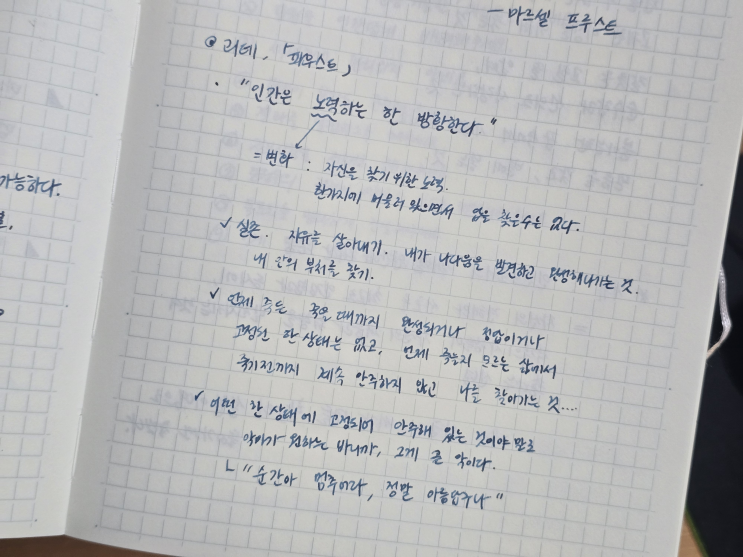 — 마르셀 프루스트
◉ 괴테, 「파우스트」
· "인간은 노력하는 한 방황한다."
= 변화 : 자신을 찾기 위한 노력.
한가지에 머물러 있으면서 업을 찾을수는 없다.
가능하다.
✓ 실존. 자유를 살아내기. 내가 나다움을 발견하고 완성해나가는 것.
내 안의 부처를 찾기.
✓ 언제 죽든 죽을 때까지 완성되거나 정답이거나
고정된 한 상태는 없고, 언제 죽을지 모르는 삶에서
죽기전까지 계속 안주하지 않고 나를 찾아가는 것....
✓ 어떤 한 상태에 고정되어 안주해 있는 것이야 말로
악마가 원하는 바니까, 그게 곧 악이다.
ㄴ "순간아 멈추어라, 정말 아름답구나"